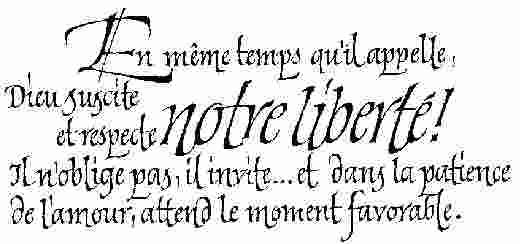 En même temps qu'il appelle,
Dieu suscite
et respecte notre liberté!
Il n'oblige pas, il invite...et dans la patience
de l'amour, attend le moment favorable.